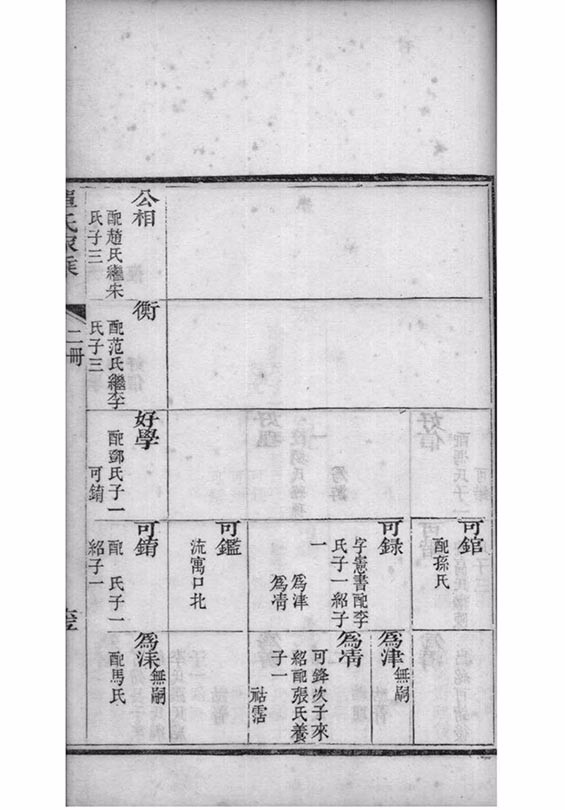 可錧
配孫氏
可録
字憲書配李
氏子一紹子
一
爲津
爲㓏
可鑑
流寓口北
爲津
無嗣
爲㓏
可鋒次子來
紹配張氏養
子一
祜霑
公相
配趙氏繼宋
氏子三
衡
配范氏繼李
氏子三
好學
配鄧氏子一
可錥
可錥
配 氏子一
紹子一
無嗣
配馬氏
二冊